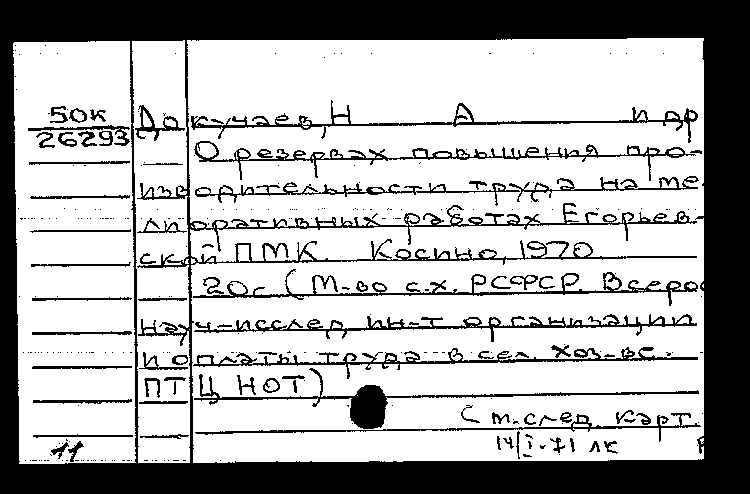 50к Докучаев, Н А и др
26293
О резервах повышения про-
изводительности труда на ме-
лиоративных работах Егорьев-
ской ПМК. Косино, 1970.
20с (М-во с.х. РСФСР. Всерос
науч-исслед. ин-т организации
и оплаты труда в сел. хоз-ве.
ПТЦ НОТ)
См. след. карт.
14/I-71 лк
11